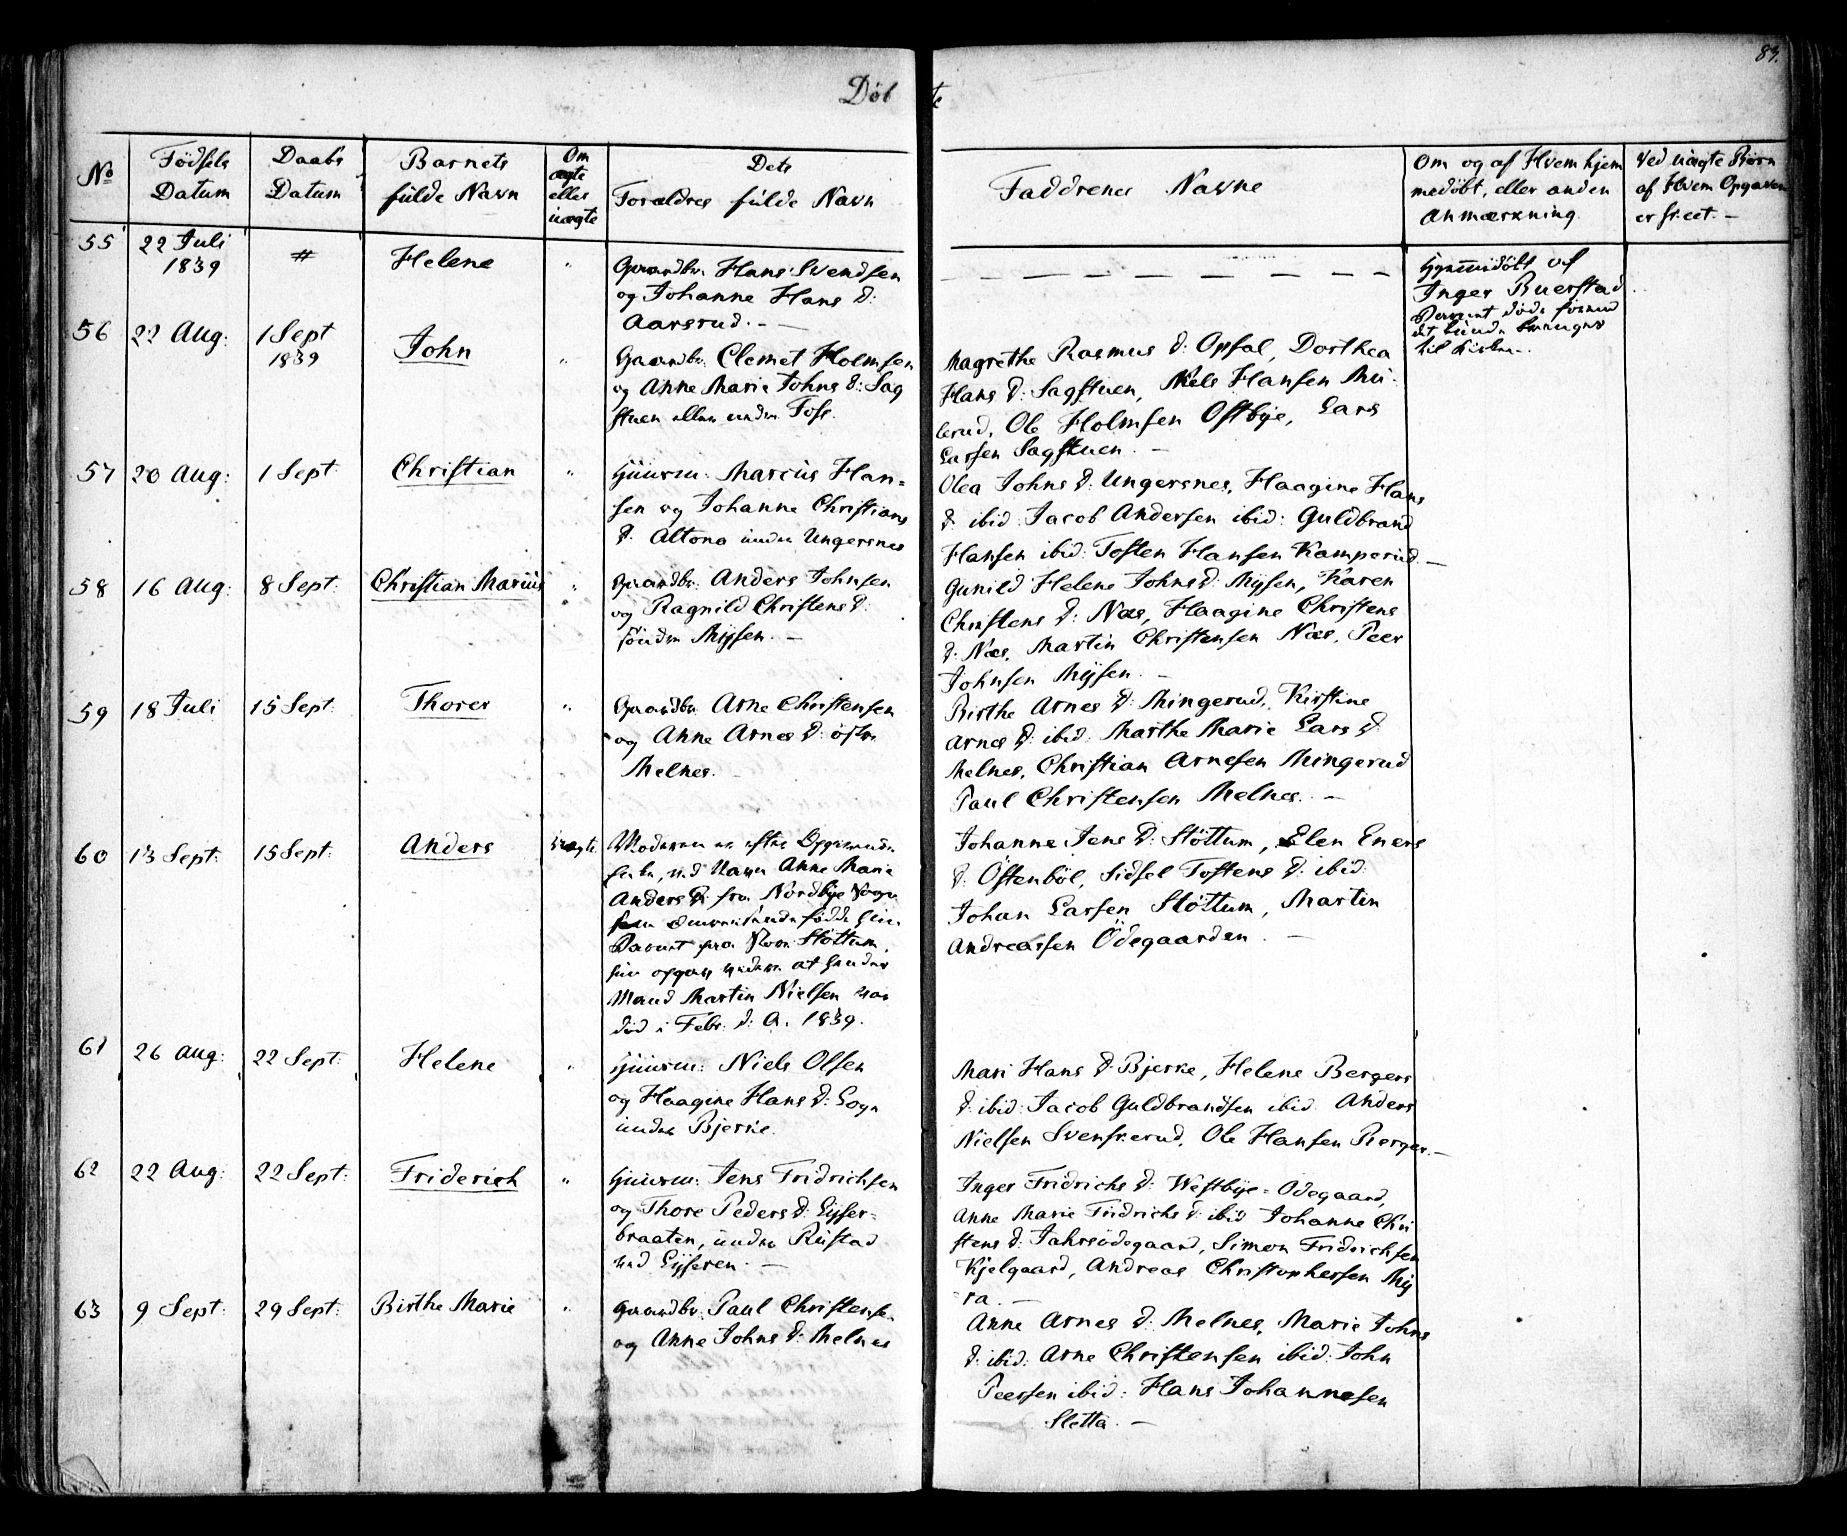 83.
Døbte
No
Fødsels Datum
Daabs Datum
Barnets fulde Navn
Om ægte eller uægte
Dets Forældres fulde Navn
Faddrenes Navne
Om og af Hvem hjemmedøbt, eller anden Anmærkning.
Ved uægte Børn af Hvem Opgaven er skeet. –
55
22 Juli
1839
#
Helene
"
Gaardbr. Hans Svendsen
og Johanne Hans D:
Aarsrud. –
— — — — — — — —
Hjemmedøbt af
Inger Buerstad
Barnet døde førend
det kunde bringes
til Kirken –.
56
22 Aug:
1 Sept
1839
John
"
Gaardbr. Clemet Holmsen
og Anne Marie Johns D: Sag
stuen eller under Foss.
Magrethe Rasmus D: Opsal, Dorthea
Hans D: Sagstuen, Niels Hansen Mu-
lerud, Ole Holmsen Ostbye, Lars
Larsen Sagstuen. –
57
20 Aug:
1 Sept:
Christian
"
Huusm: Marcus Han=
sen og Johanne Christians
D. Altona under Ungersnes
Olea Johns D: Ungersnes, Haagine Hans
D. ibid: Jacob Andersen ibid: Guldbrand
Hansen ibid: Tosten Hansen Kamperud. –
58
16 Aug:
8 Sept:
Christian Marius
"
Gaardbr. Anders Johnsen
og Ragnild Christens D:
søndre Mysen. –
Gunild Helene Johns D: Mysen, Karen
Christens D: Næs, Haagine Christens
D. Næs, Martin Christensen Næs, Peer
Johnsen Mysen. –
59
18 Juli
15 Sept:
Thorer
"
Gaardbr. Arne Christensen
og Anne Arnes D: østre
Melnes. –
Birthe Arnes D: Mingerud, Kirstine
Arnes D: ibid: Marthe Marie Lars D
Melnes, Christian Arnesen Mingerud
Paul Christensen Melnes. –
60
13 Sept:
15 Sept:
Anders
uægte
Moderen er efter Opgivende
Enke, ved Navn Anne Marie
Anders D: fra Nordbye Sogn
som fødde sin
Barnet paa Støttum,
hun opgav videre at hendes
Mand Martin Nielsen var
død i Febr. d: A. 1839.
Johanne Jens D: Støttum, Elen Eners
D: Ostenbøl, Sidsel Tostens D: ibid:
Johan Larsen Støttum, Martin
Andreassen Ödegaarden. –
61
26 Aug:
22 Sept:
Helene
"
Huusm: Niels Olsen
og Haagine Hans D: Sogn
under Bjerke.
Mari Hans D: Bjerke, Helene Bergers
D: ibid: Jacob Guldbrandsen ibid: Anders
Nielsen Svenskerud, Ole Hansen Berger. –
62
22 Aug:
22 Sept:
Friderich
"
Huusm: Jens Fridrichsen
og Thore Peders D: Lysser=
braaten, under Rustad
ved Lysseren. –
Inger Fridrichs D: Westbye=Odegaard,
Anne Marie Fridrichs D: ibid Johanne Chri
stens D: Jahrsödegaard, Simon Fridrichsen
Kjelgaard, Andreas Christophersen My
ra. –
63
9 Sept:
29 Sept:
Birthe Marie
"
Gaardbr. Paul Christense
og Anne Johns D: Melnes
Anne Arnes D: Melnes, Marie Johns
D: ibid: Arne Christensen ibid: John
Peersen ibid: Hans Johannesen
Sletta. –